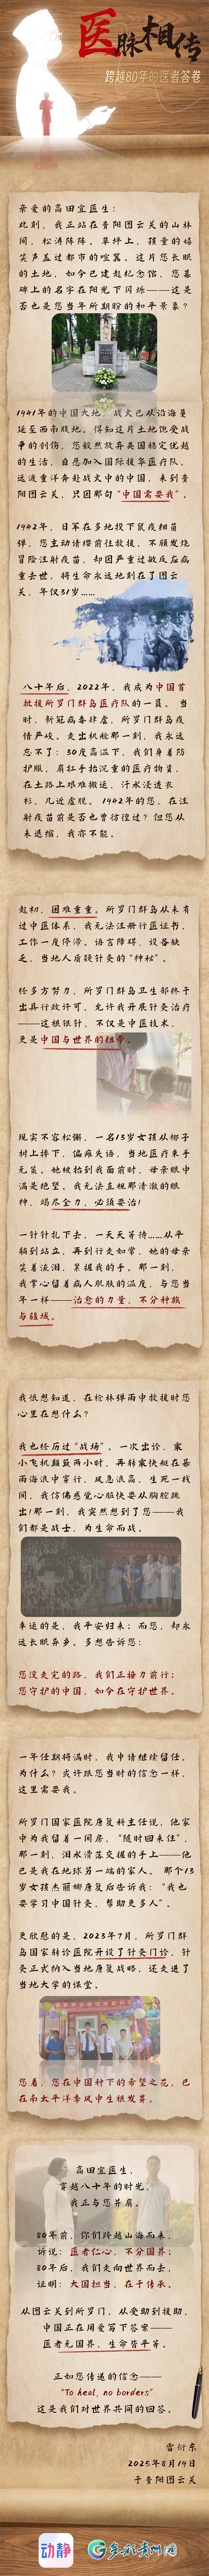 医脉相传
跨越80年的医者答卷
亲爱的高田宜医生：
此刻，我正站在贵阳图云关的山林
间，松涛阵阵。草坪上，孩童的嬉
笑声盖过都市的喧嚣。这片您长眠
的土地，如今已建起纪念馆，您墓
碑上的名字在阳光下闪烁——这是
否也是您当年所期盼的和平景象？
1941年的中国大地，战火已从沿海蔓
延至西南腹地。得知这片土地饱受战
争的创伤，您毅然放弃英国稳定优越
的生活，自愿加入国际援华医疗队，
远渡重洋奔赴战火中的中国，来到贵
阳图云关，只因那句“中国需要我”。
1942年，日军在多地投下鼠疫细菌
弹，您主动请缨前往救援，不顾发烧
冒险注射疫苗，却因严重过敏反应病
重去世，将生命永远地刻在了图云
关，年仅31岁……
八十年后，2022年，我成为中国首
批援所罗门群岛医疗队的一员。当
时，新冠病毒肆虐，所罗门群岛疫
情严峻。走出机舱那一刻，我永远
忘不了：30度高温下，我们身着防
护服，肩扛手抬沉重的医疗物资，
在土路上艰难搬运，汗水浸透衣
衫，几近虚脱。1942年的您，在注
射疫苗前是否也曾彷徨？但您从
未退缩，我亦不能。
起初，困难重重。所罗门群岛从未有
过中医体系，我无法注册行医证书，
工作一度停滞。语言障碍，设备缺
乏，当地人质疑针灸的“神秘”。
经多方努力，所罗门群岛卫生部终于
出具行政许可，允许我开展针灸治疗
——这根银针，不仅是中医技术，
更是中国与世界的纽带。
现实不容松懈，一名13岁女孩从椰子
树上摔下，偏瘫失语，当地医疗束手
无策。她被抬到我面前时，母亲眼中
满是绝望。我无法直视那清澈的眼
神，竭尽全力，必须要治！
一针针扎下去，一天天等待……从平
躺到站立，再到行走如常，她的母亲
笑着流泪，紧握我的手。那一刻，
我掌心留着病人肌肤的温度，与您当
年一样——治愈的力量，不分种族
与疆域。
我很想知道，在枪林弹雨中救援时您
心里在想什么？
我也经历过“战场”。一次出诊，乘
小飞机颠簸两小时，再转乘快艇在暴
雨海浪中穿行，风急浪高，生死一线
间，我仿佛感觉心脏快要从胸腔跳
出！那一刻，我突然想到了您——我
们都是战士，为生命而战。
幸运的是，我平安归来；而您，却永
远长眠异乡。多想告诉您：
您没走完的路，我们正接力前行；
您守护的中国，如今在守护世界。
一年任期将满时，我申请继续留任。
为什么？或许跟您当时的信念一样，
这里需要我。
所罗门国家医院康复科主任说，他家
中为我留着一间房，“随时回来住”，
那一刻，泪水滑落交握的手上——他
已是我在地球另一端的家人。那个13
岁女孩杰丽娜康复后告诉我：“我也
要学习中国针灸，帮助更多人”。
更欣慰的是，2023年7月，所罗门群
岛国家转诊医院开设了针灸门诊，针
灸正式纳入当地康复战略，还走进了
当地大学的课堂。
您看，您在中国种下的希望之花，已
在南太平洋季风中生根发芽。
高田宜医生，
穿越八十年的时光，
我正与您并肩。
80年前，你们跨越山海而来，
诉说：医者仁心，不分国界；
80年后，我们走向世界而去，
证明：大国担当，在于传承。
从图云关到所罗门，从受助到援助，
中国正在用爱写下答案——
医者无国界，生命皆平等。
正如您传递的信念——
“To heal, no borders”
这是我们对世界共同的回答。
雷衍东
2025年8月19日
于贵阳图云关
动静
多彩贵州网